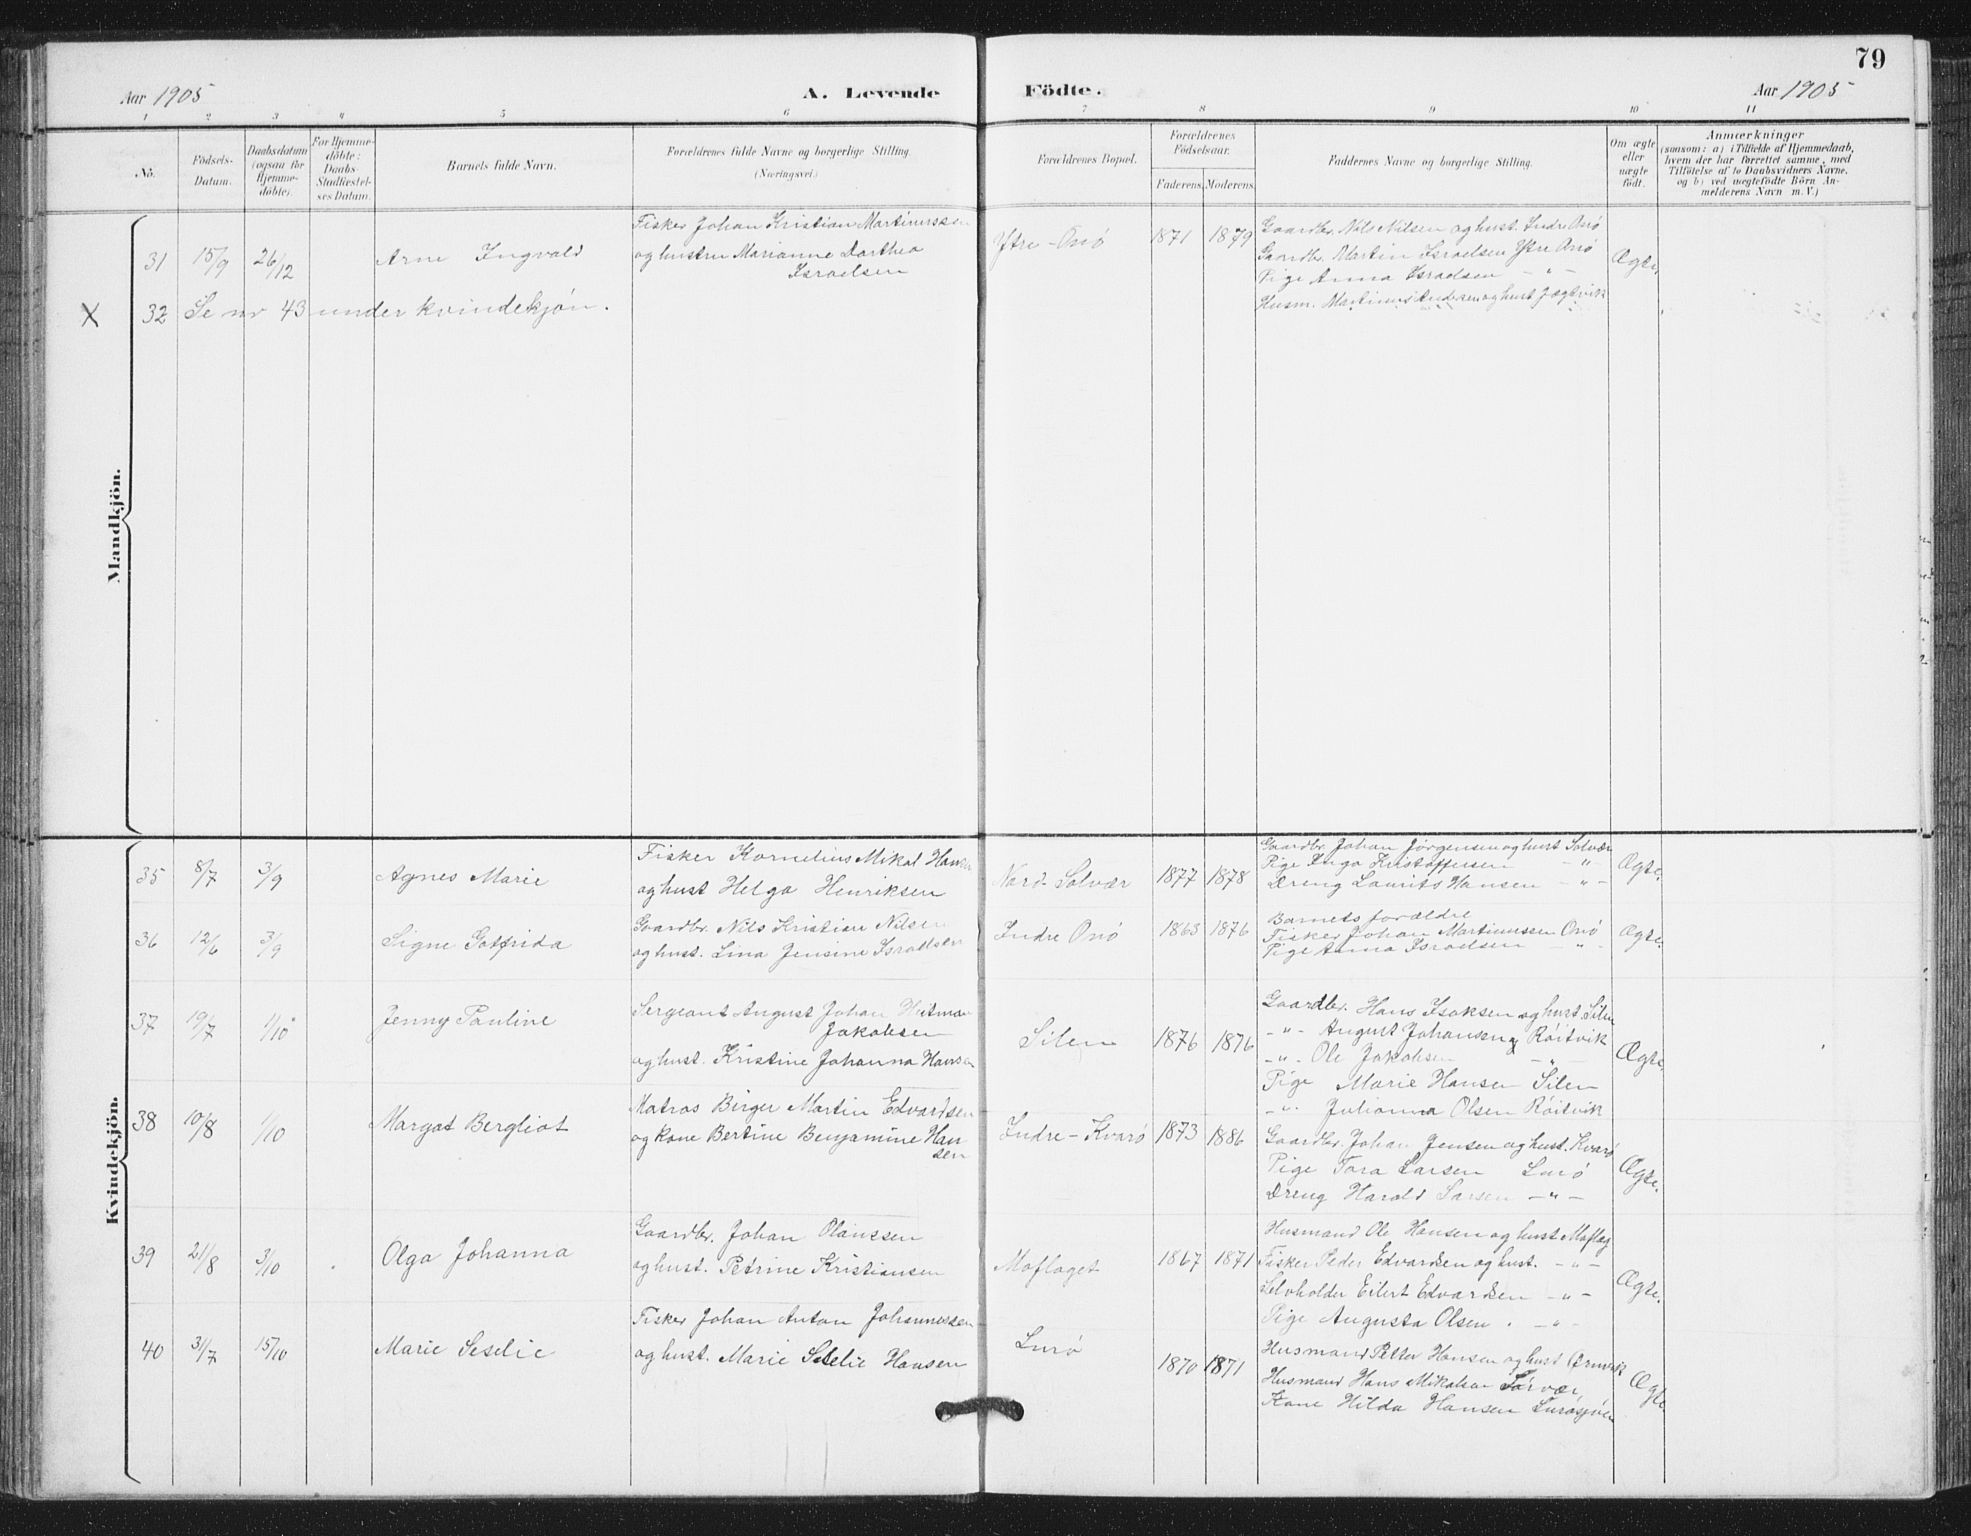 79
Aar 1905
A. Levende
Födte.
Aar 1905
1 2 3 4 5 6 7 8 9 10 11
No.
Födsels-Datum.
Daabsdatum (ogsaa for Hjemme-döbte).
For Hjemme-döbte: Daabs-Stadfæstelses Datum.
Barnets fulde Navn.
Forældrenes fulde Navne og borgerlige Stilling.
(Næringsvei.)
Forældrenes Bopæl.
Forældrenes Födselsaar.
Faderens
Moderens
Faddernes Navne og borgerlige Stilling.
Om ægte eller uægte födt.
Anmærkninger
(saasom: a) i Tilfælde af Hjemmedaab,
hvem der har forrettet samme, med
Tilföielse af to Daabsvidners Navne,
og b) ved uægtefödte Börn An-
melderens Navn m. V.)
Mandkjön.
31 15/9 26/12 Arne Ingvald
Fisker Johan Kristian Martinussen
og hustru Marianne Dorthea
Israelsen
Ytre-Onö 1871 1879
Gaardbr. Nils Nilsen og hust. Indre Onö
Gaardbr. Martin Israelsen Ytre Onö
Pige Anna Israelsen - " -
Husm. Martinus Andersen og hust Jægtvik
Ægte.
X 32 Se nr 43 under kvindekjön.
Kvindekjön.
35 8/7 3/9 Agnes Marie
Fisker Kornelius Mikal Hansen
og hust Helga Henriksen
Nord-Solvær 1877 1878
Gaardbr. Johan Jörgensen og hust Solvær
Pige Inga Kristoffersen - " -
Dreng Laurits Hansen - " -
Ægte.
36 12/6 3/9 Signe Gotfrida
Gaardbr. Nils Kristian Nilsen
og hust. Lina Jensine Israelsen
Indre Onö 1868 1876
Barnets forældre
Fisker Johan Martinussen Onö
Pige Anna Israelsen - " -
Ægte.
37 19/7 1/10 Jenny Pauline
Sergeant August Johan Heitman
Jakobsen
og hust. Kristine Johanna Hansen
Silen 1876 1876
Gaardbr. Hans Isaksen og hust. Silen
- " - August Johansen Röitvik
- " - Ole Jakobsen - " -
Pige Marie Hansen Silen
- " - Julianna Olsen Röitvik
Ægte
38 10/8 1/10 Margot Bergliot
Matros Birger Martin Edvardsen
og kone Bertine Benjamine Han
sen
Indre-Kvarö 1873 1886
Gaardbr. Johan Jensen og hust. Kvarö
Pige Tora Larsen Lurö
Dreng Harald Larsen - " -
Ægte.
39 21/8 3/10 Olga Johanna
Gaardbr. Johan Olaussen
og hust. Petrine Kristiansen
Moflaget 1867 1871
Husmand Ole Hansen og hust Moflag
Fisker Peder Edvardsen og hust. - " -
Selvholder Eilert Edvardsen - " -
Pige Augusta Olsen - " -
Ægte.
40 31/7 15/10 Marie Seselie
Fisker Johan Anton Johannessen
og hust. Marie Selelie Hansen
Lurö
1870 1871
Husmand Petter Hansen og hust Ørnvik
Husmand Hans Mikalsen Sörvær
Kone Hilda Hansen Lurösjöen
Ægte